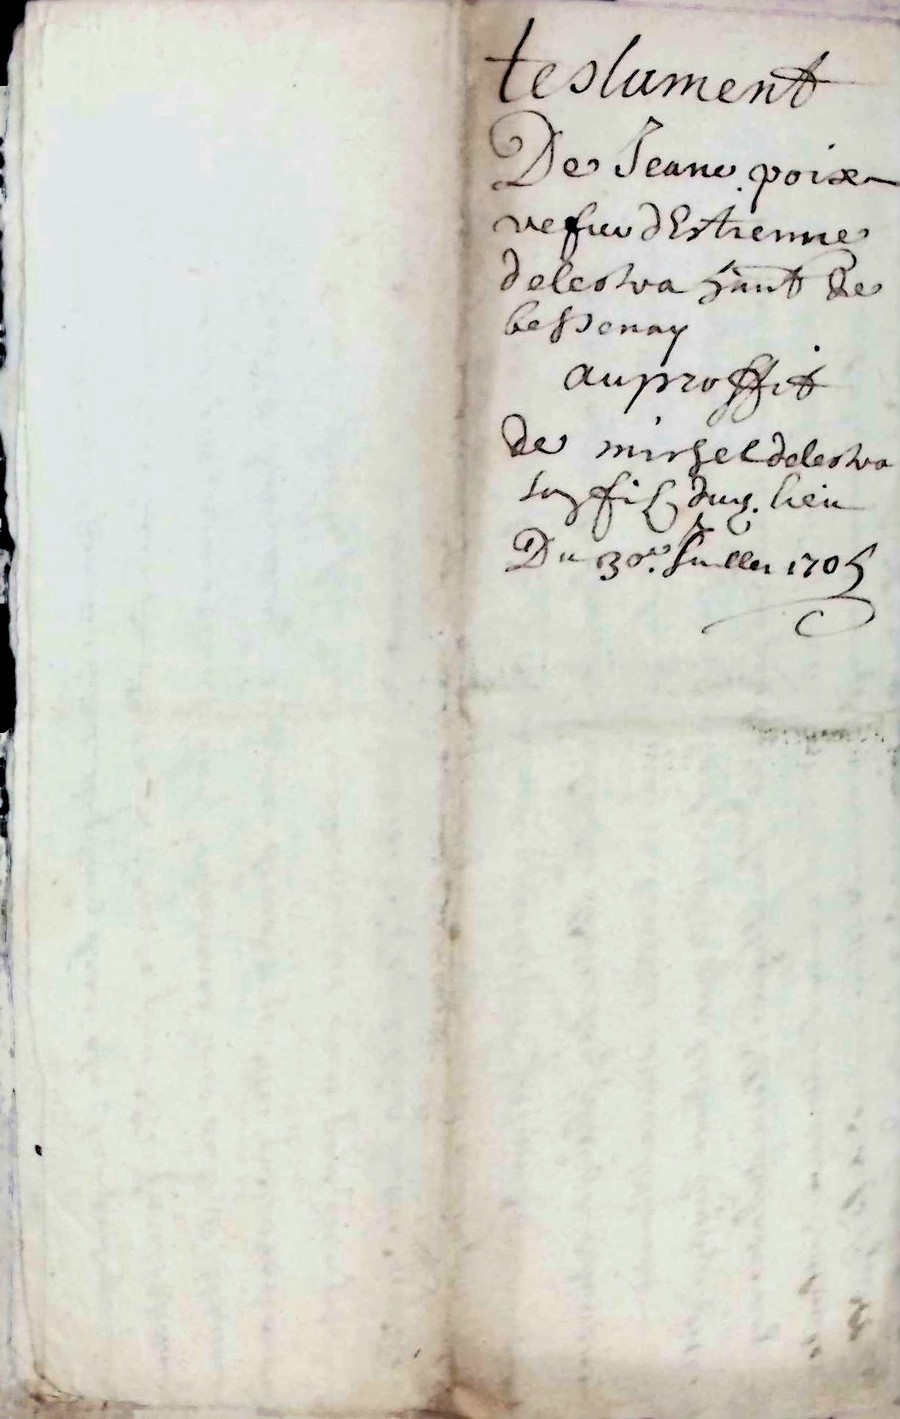 testament
De Jeane poix
vefue d'Estienne
delestra hant de
bessenay
au proffit
de michel delestra
son filz dud. lieu
Du 30e. Juillet 1705